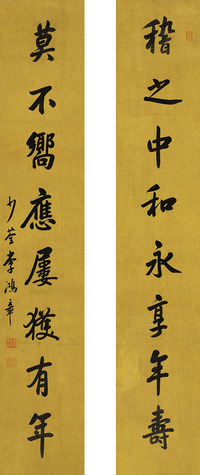 稽之中和永享年壽
莫不嚮應屢獲有年
少荃李鴻章